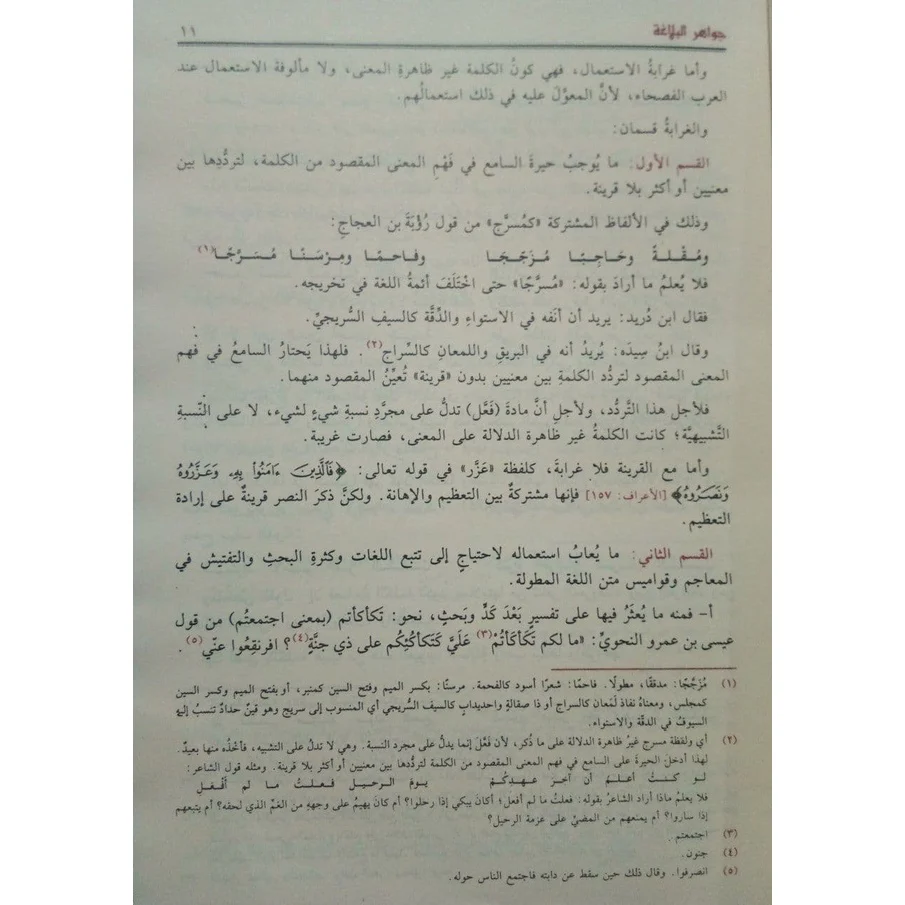 جواهر البلاغة ١١
وأما غرابةُ الاستعمال، فهي كونُ الكلمة غير ظاهرةِ المعنى، ولا مألوفة الاستعمال عند
العرب الفصحاء، لأنَّ المعوَّلَ عليه في ذلك استعمالُهم.
والغرابةُ قسمان:
القسم الأول: ما يُوجبُ حيرةَ السامع في فَهْمِ المعنى المقصود من الكلمة، لتردُّدِها بين
معنيين أو أكثر بلا قرينة.
وذلك في الألفاظ المشتركة «كمُسرَّج» من قول رُؤْبَةَ بن العجاجِ:
ومُقْلةً وحَاجِبًا مُزَجَّجَا وفاحمًا ومِرْسَنًا مُسَرَّجًا(١)
فلا يُعلمُ ما أرادَ بقوله: «مُسرَّجًا» حتى اخْتَلَفَ أئمةُ اللغة في تخريجه.
فقال ابن دُريد: يريد أن أنَفه في الاستواءِ والدِّقَّة كالسيفِ السُّريجيِّ.
وقال ابنُ سِيدَه: يُريدُ أنه في البريقِ واللمعانِ كالسِّراجِ(٢). فلهذا يَحتارُ السامعُ في فهم
المعنى المقصود لتردُّد الكلمةِ بين معنيين بدون «قرينة» تُعيِّنُ المقصود منهما.
فلأجلِ هذا التَّردُّد، ولأجلِ أنَّ مادةَ (فَعَّل) تدلُّ على مجرَّدِ نسبةِ شيءٍ لشيء، لا على النِّسبةِ
التَّشبيهيَّة؛ كانت الكلمةُ غير ظاهرة الدلالة على المعنى، فصارت غريبة.
وأما مع القرينة فلا غرابةَ، كلفظة «عَزَّر» في قوله تعالى: ﴿فَٱلَّذِينَ ءَامَنُوا۟ بِهِۦ وَعَزَّرُوهُ
وَنَصَرُوهُ﴾ [الأعراف: ١٥٧] فإنها مشتركةٌ بين التعظيم والإهانة. ولكنَّ ذكرَ النصر قرينةٌ على إرادة
التعظيم.
القسم الثاني: ما يُعابُ استعماله لاحتياجٍ إلى تتبع اللغات وكثرةِ البحثِ والتفتيش في
المعاجم وقواميس متن اللغة المطولة.
أ- فمنه ما يُعثَرُ فيها على تفسيرٍ بَعْدَ كَدٍّ وبَحثٍ، نحو: تَكأكأتم (بمعنى اجتمعتُم) من قول
عيسى بن عمرو النحويِّ: «ما لكم تَكَأكَأتُمْ(٣) عَلَيَّ كَتَكأكُئِكُم على ذي جنَّةٍ(٤)؟ افرنقِعُوا عنّي(٥).
(١) مُزَجَّجًا: مدققًا، مطولًا. فاحمًا: شعرًا أسود كالفحمة. مرسنًا: بكسر الميم وفتح السين كمنبر، أو بفتح الميم وكسر السين
كمجلس، ومعناهُ نفاذ لَمَعان كالسراج أو ذا صقالةٍ واحديدابٍ كالسيف السُّريجي أي المنسوب إلى سريج وهو قَينٌ حدادٌ تنسبُ إليهِ
السيوفُ في الدقة والاستواء.
(٢) أي ولفظة مسرج غيرُ ظاهرة الدلالة على ما ذُكر، لأن فَعَّلَ إنما يدلُّ على مجرد النسبة. وهي لا تدلُّ على التشبيه، فأخذُه منها بعيدٌ.
لهذا أدخل الحيرةَ على السامع في فهم المعنى المقصود من الكلمة لتردُّدها بين معنيين أو أكثر بلا قرينة. ومثله قول الشاعر:
لو كنتُ أعلمُ أن آخرَ عهدِكُم يومَ الرحيل فعلتُ ما لم أفْعَلِ
فلا يعلمُ ماذا أراد الشاعرُ بقوله: فعلتُ ما لم أفعل؛ أكانَ يبكي إذا رحلوا؟ أم كان يهيمُ على وجههِ من الغمِّ الذي لحقه؟ أم يتبعهم
إذا ساروا؟ أم يمنعهم من المضيِّ على عزمة الرحيل؟
(٣) اجتمعتم.
(٤) جنون.
(٥) انصرفوا. وقال ذلك حين سقط عن دابته فاجتمع الناس حوله.